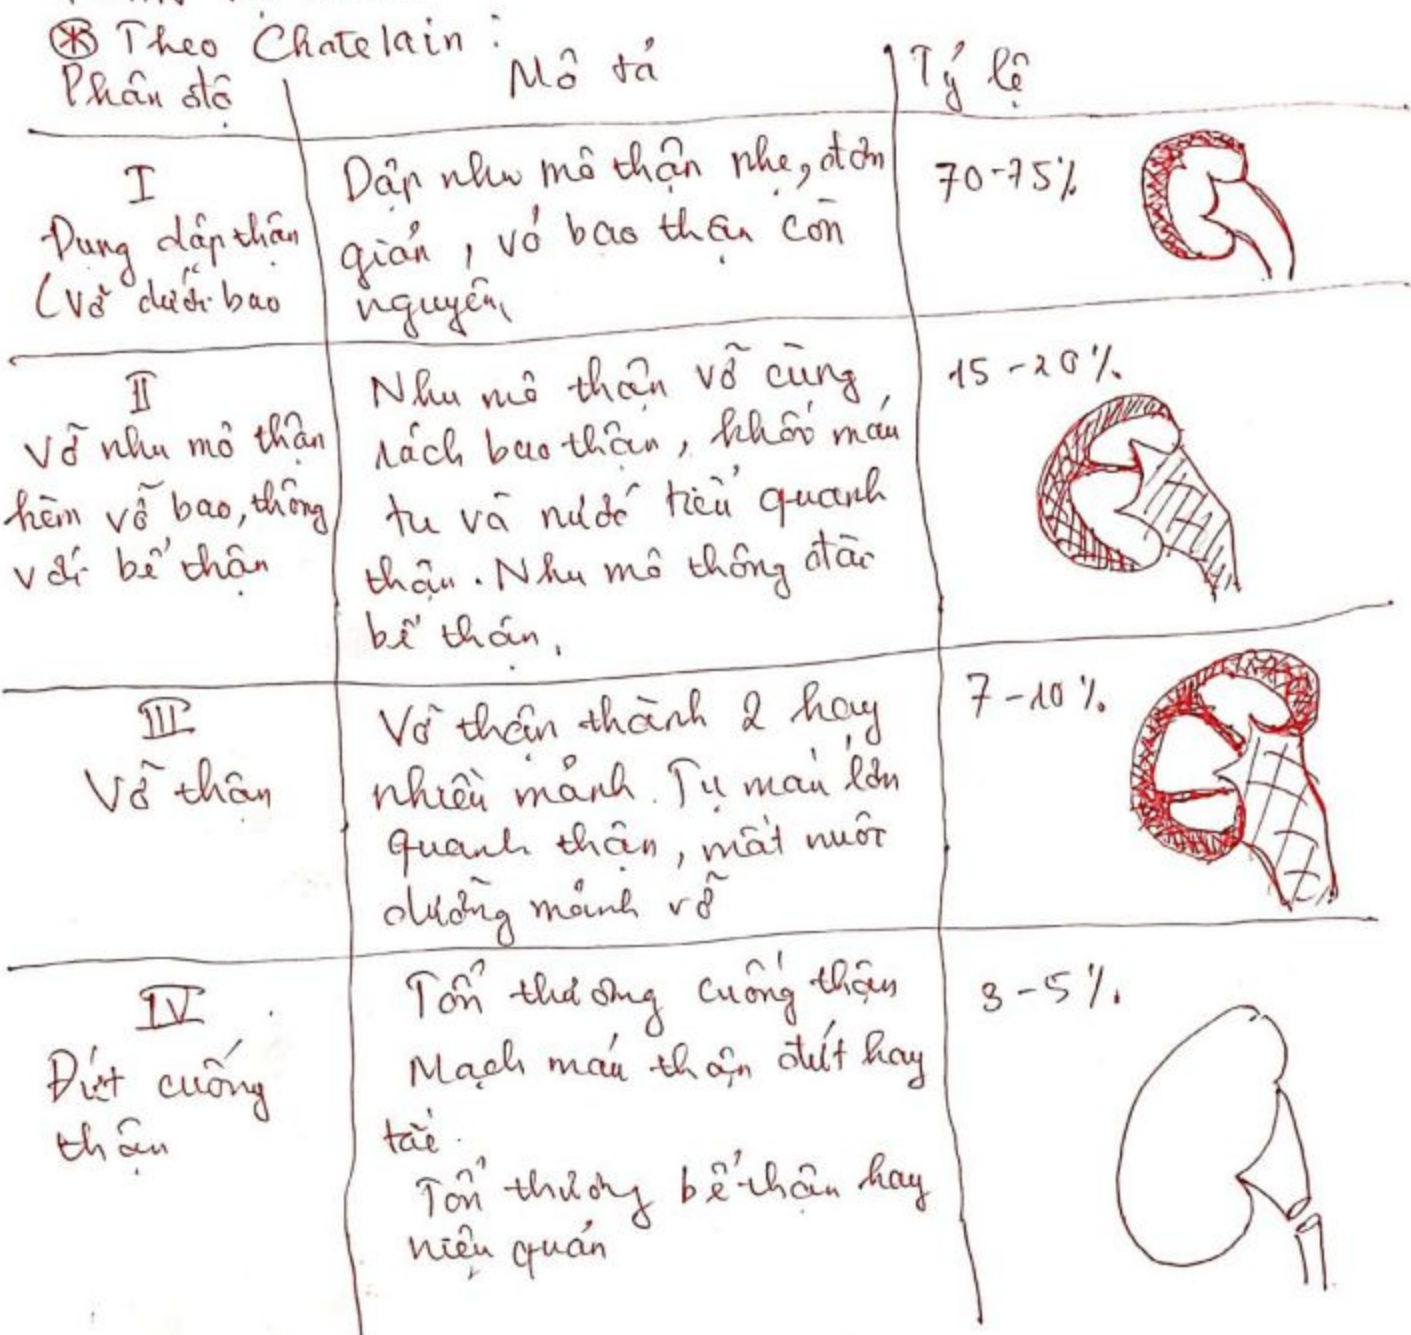 ⊛ Theo Chatelain :
Phân độ
Mô tả
Tỷ lệ
I
Đụng dập thận
(Vỡ dưới bao
Dập nhu mô thận nhẹ, đơn
giản, vỏ bao thận còn
nguyên
70-75%
II
Vỡ nhu mô thận
kèm vỡ bao, thông
với bể thận
Nhu mô thận vỡ cùng
rách bao thận, khối máu
tụ và nước tiểu quanh
thận. Nhu mô thông đài
bể thận.
15-20%
III
Vỡ thận
Vỡ thận thành 2 hay
nhiều mảnh. Tụ máu lớn
quanh thận, mất nuôi
dưỡng mảnh vỡ
7-10%
IV
Đứt cuống
thận
Tổn thương cuống thận
Mạch máu thận đứt hay
tắc.
Tổn thương bể thận hay
niệu quản
3-5%